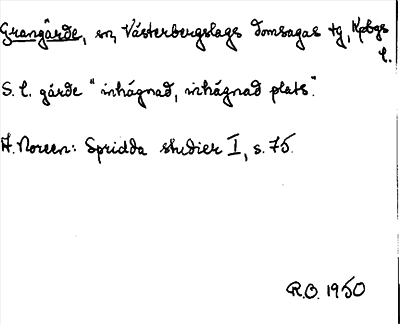 Grangärde, sn, Västerbergslags domsagas tg, Kpbgs
l.
S. l. gärde "inhägnad, inhägnad plats".
A. Noreen: Spridda studier I, s. 75.
R.O. 1950